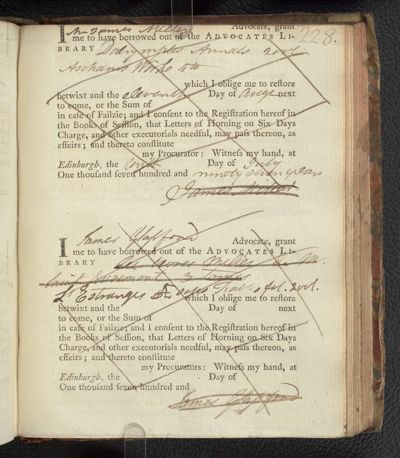 228.
I Mr James Miller Advocate, grant
me to have borrowed out of the ADVOCATES LI-
BRARY Dalrymples Annals 2 vol.
Aschams Works 4to
which I oblige me to restore
betwixt and the eleventh Day of Augt next
to come, or the Sum of
in case of Failzie; and I consent to the Registration hereof in
the Books of Session, that Letters of Horning on Six Days
Charge, and other executorials needful, may pass thereon, as
effeirs; and thereto constitute
my Procurators: Witness my hand, at
Edinburgh, the Day of July
One thousand seven hundred and ninety seven years
James Miller
I James Glassford Advocate, grant
me to have borrowed out of the ADVOCATES LI-
BRARY
L'Estranges fol. 2 vol.
which I oblige me to restore
betwixt and the Day of next
to come, or the Sum of
in case of Failzie; and I consent to the Registration hereof in
the Books of Session, that Letters of Horning on Six Days
Charge, and other executorials needful, may pass thereon, as
effeirs; and thereto constitute
my Procurators: Witness my hand, at
Edinburgh, the Day of
One thousand seven hundred and
James Glassford